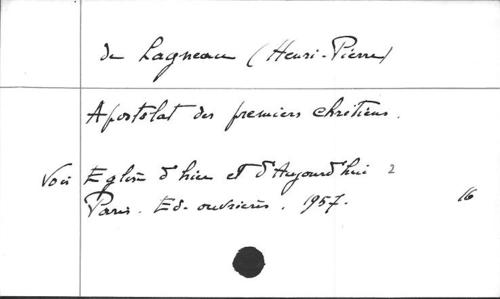 de Lagneau (Henri-Pierre)
Apostolat des premiers chrétiens.
Voir Eglise d'hier et d'Aujourd'hui 2
Paris. Ed. ouvrières. 1957. 16